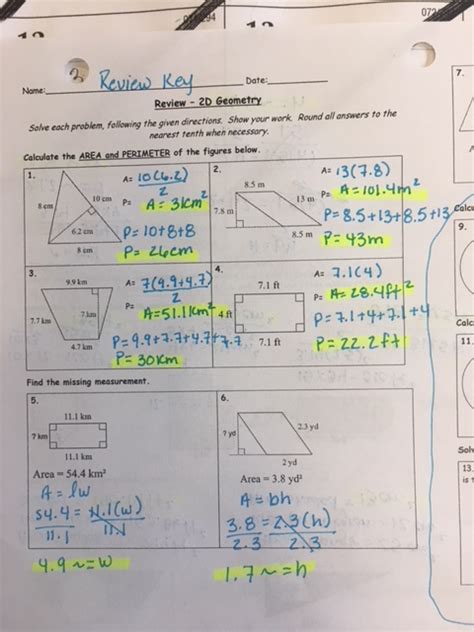 Review Key
Name: Date:
Review - 2D Geometry
Solve each problem, following the given directions. Show your work. Round all answers to the
nearest tenth when necessary.
Calculate the AREA and PERIMETER of the figures below.
1.
8 cm
10 cm
6.2 cm
8 cm
A= 10(6.2)
2
P= A = 31cm²
P= 10+8+8
P= 26cm
2.
8.5 m
7.8 m
13 m
8.5 m
A= 13(7.8)
P= A=101.4m²
P= 8.5+13+8.5+13
P= 43m
3.
9.9 km
7.7 km
7 km
4.7 km
A= 7(9.9+4.7)
2
P= A=51.1km²
P= 9.9+7.7+4.7+7.7
P= 30km
4.
7.1 ft
4 ft
7.1 ft
A= 7.1(4)
P= A= 28.4ft²
P= 7.1+4+7.1+4
P= 22.2ft
Find the missing measurement.
5.
11.1 km
? km
11.1 km
Area = 54.4 km²
A = lw
54.4 = 11.1(w)
11.1
4.9 ≈ w
6.
? yd
2.3 yd
2 yd
Area = 3.8 yd²
A = bh
3.8 = 2.3(h)
2.3 2.3
1.7 ≈ h
7.
Calc
9.
Calc
11.
Solv
13.
is t